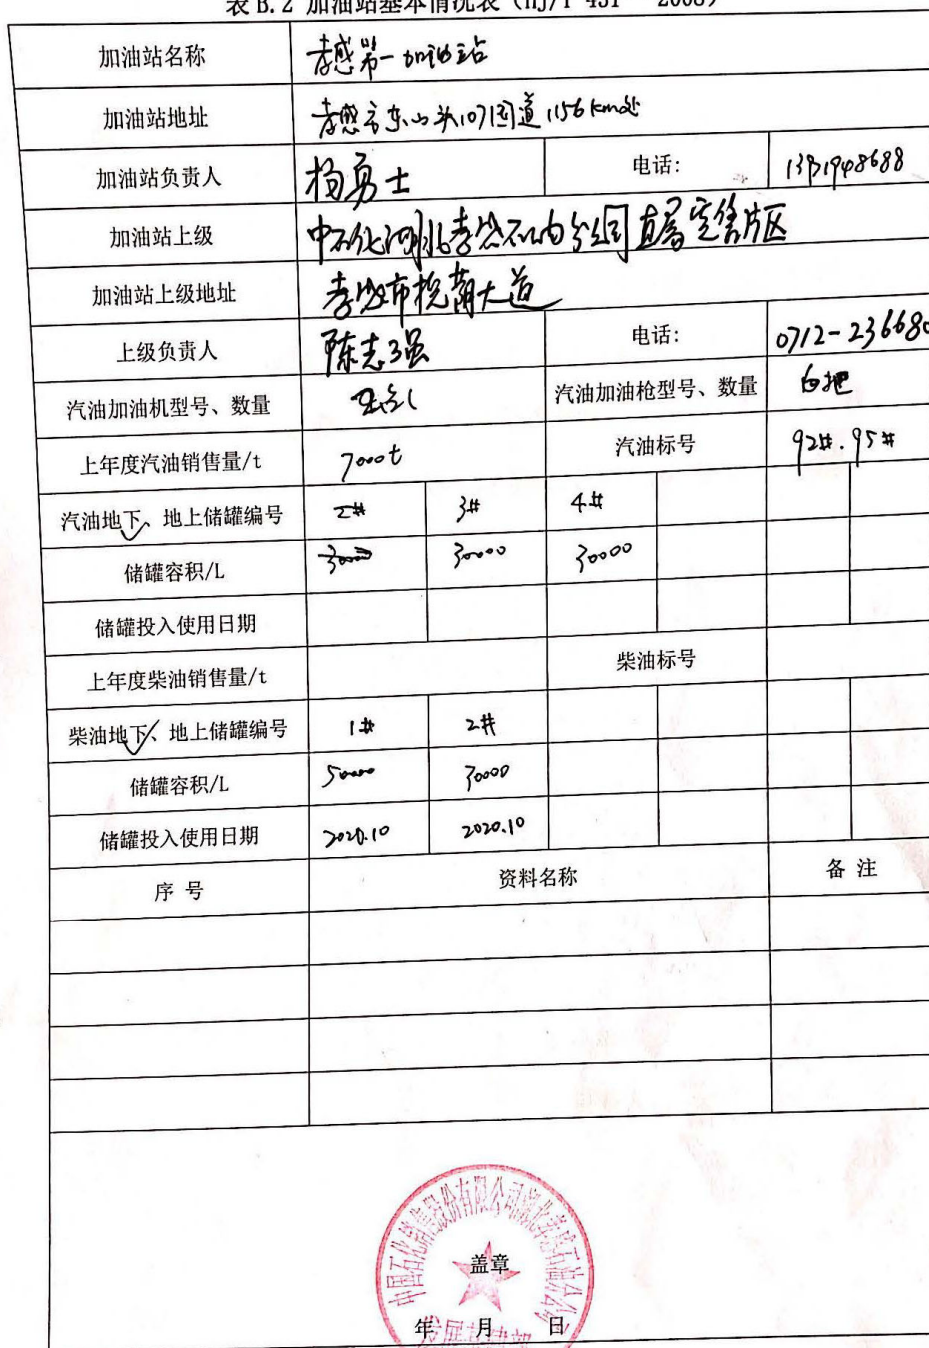 表 B.2 加油站基本情况表（HJ/T 431—2008）
加油站名称 孝感第一加油站
加油站地址 孝感市东山头107国道1156km处
加油站负责人 杨勇士 电话:
加油站上级 中石化湖北孝感石油分公司直属零售片区
加油站上级地址 孝感市槐荫大道
上级负责人 陈志强 电话: 0712-236680
汽油加油机型号、数量 汽油加油枪型号、数量
上年度汽油销售量/t 7000t 汽油标号 92#.95#
汽油地下、地上储罐编号 2# 3# 4#
储罐容积/L 30000 30000 30000
储罐投入使用日期
上年度柴油销售量/t 柴油标号
柴油地下、地上储罐编号 1# 2#
储罐容积/L 50000 30000
储罐投入使用日期 2020.10 2020.10
序 号 资料名称 备 注
中国石化销售股份有限公司湖北孝感石油分公司
盖章
年 月 日
发展基建部